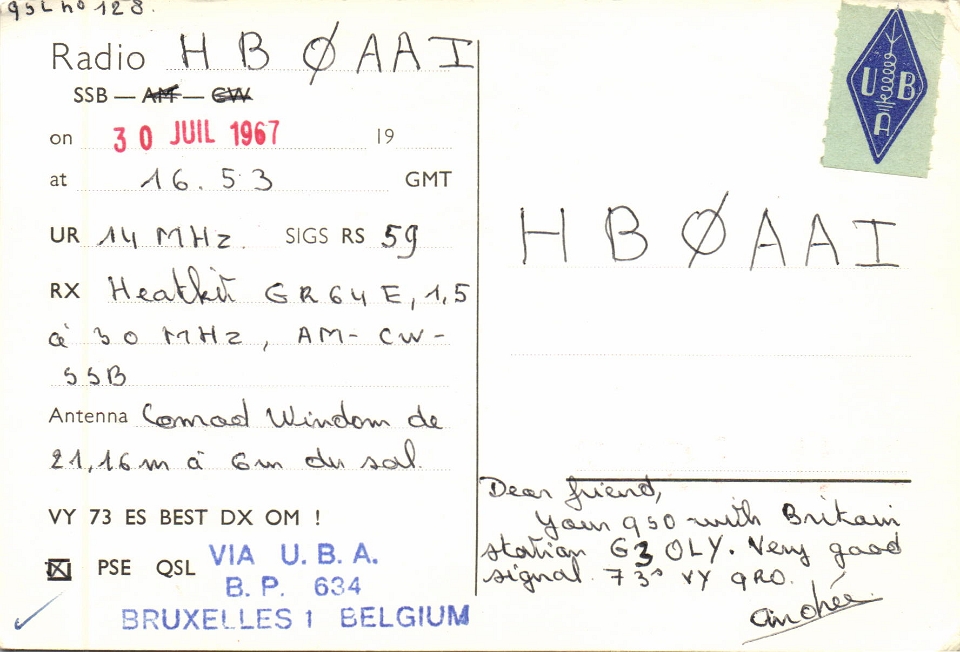 QSL no 128.
Radio HBØAAI
SSB — AM — CW
on 30 JUIL 1967 19
at 16.53 GMT
UR 14 MHz. SIGS RS 59
RX Heatkit GR64E, 1,5
à 30 MHz, AM-CW-
SSB
Antenna Conrad Windom de
21,16m à 6m du sol.
VY 73 ES BEST DX OM !
PSE QSL VIA U.B.A.
B.P. 634
BRUXELLES 1 BELGIUM
UBA
HBØAAI
Dear friend,
Your qso with Britain
station G3OLY. Very good
signal. 73s VY QRO.
Andrée